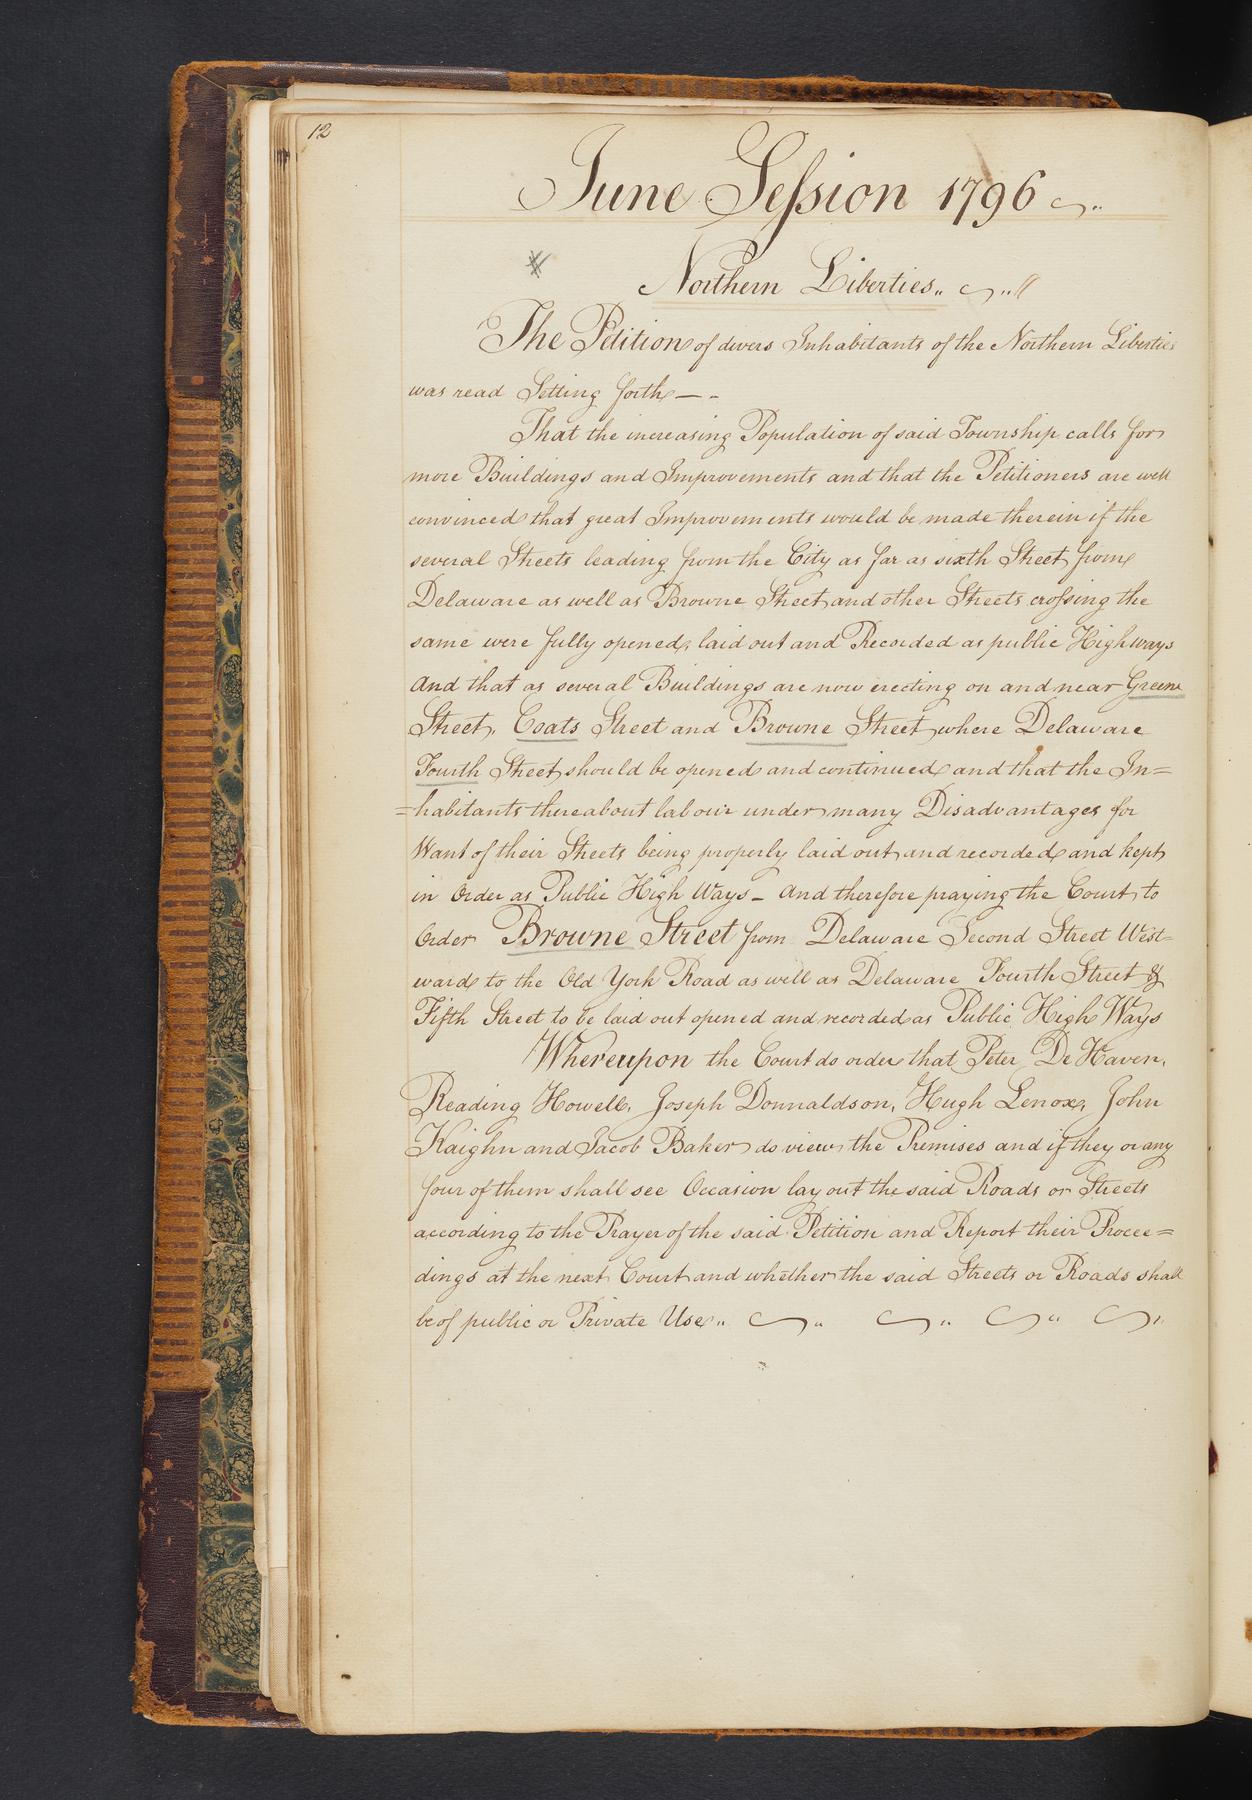 12
June Session 1796
Northern Liberties
The Petition of divers Inhabitants of the Northern Liberties
was read Setting forth —
That the increasing Population of said Township calls for
more Buildings and Improvements and that the Petitioners are well
convinced that great Improvements would be made therein if the
several Streets leading from the City as far as sixth Street from
Delaware as well as Browne Street and other Streets crossing the
same were fully opened, laid out and Recorded as public Highways
And that as several Buildings are now erecting on and near Greene
Street, Coats Street and Browne Street where Delaware
Fourth Street should be opened and continued and that the In=
=habitants thereabout labour under many Disadvantages for
Want of their Streets being properly laid out and recorded and kept
in Order as Public High Ways – And therefore praying the Court to
Order Browne Street from Delaware Second Street West=
ward to the Old York Road as well as Delaware Fourth Street &
Fifth Street to be laid out opened and recorded as Public High Ways
Whereupon the Court do order that Peter De Haven,
Reading Howell, Joseph Donnaldson, Hugh Lenox, John
Kaighn and Jacob Baker do view the Premises and if they or any
four of them shall see Occasion lay out the said Roads or Streets
according to the Prayer of the said Petition and Report their Procee=
dings at the next Court and whether the said Streets or Roads shall
be of public or Private Use